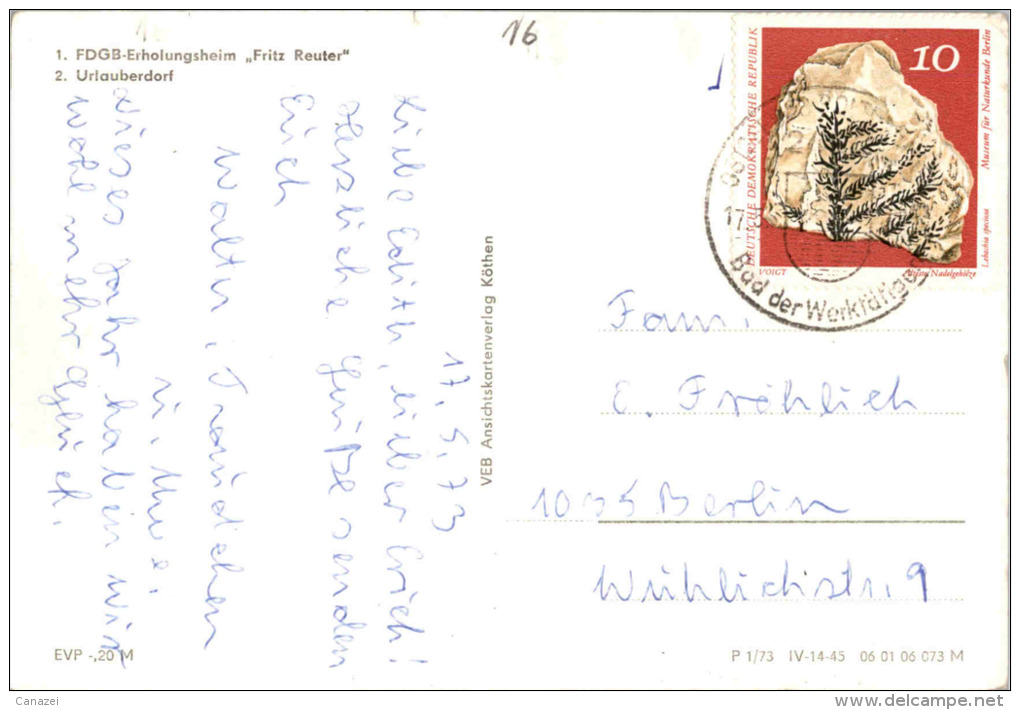 1. FDGB-Erholungsheim „Fritz Reuter"
2. Urlauberdorf
16
17.5.73
Liebe Edith, lieber Erich!
Herzliche Grüße senden
Euch
Walter, Traudchen
u. Uwe.
Dieses Jahr haben wir
wohl mehr Glück.
VEB Ansichtskartenverlag Köthen
DEUTSCHE DEMOKRATISCHE REPUBLIK
10
Museum für Naturkunde Berlin
Lebachia speciosa
VOIGT
Nadelgehölze
17.5
Bad der Werktätigen
Fam.
E. Fröhlich
1035 Berlin
Wühlischstr. 9
EVP -,20 M
P 1/73 IV-14-45 06 01 06 073 M
Canazei
www.delcampe.net